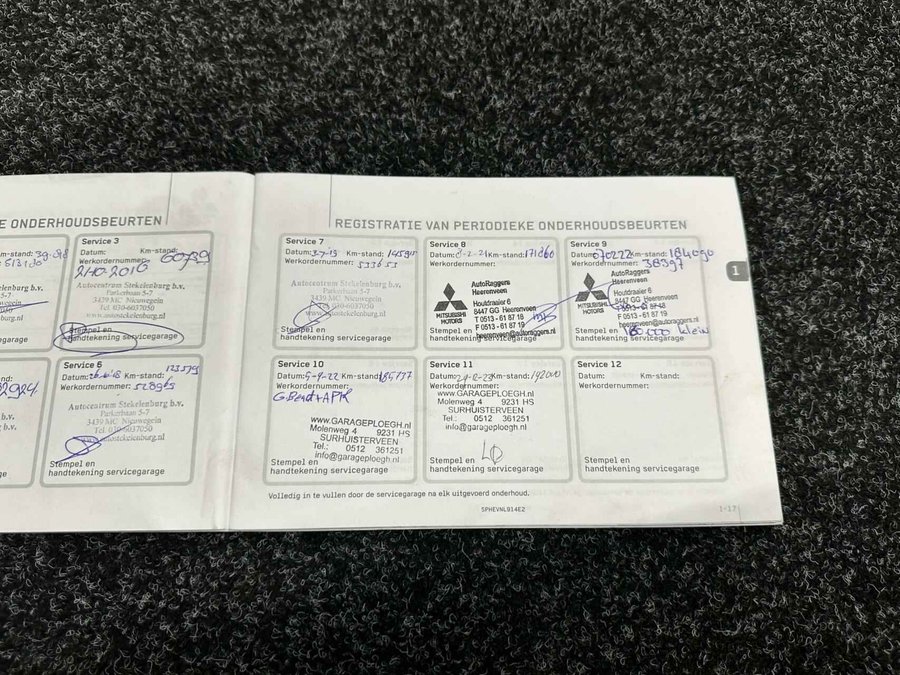 E ONDERHOUDSBEURTEN
Service 3
Datum:
Km-stand: 60739
Werkordernummer:
Autocentrum Stekelenburg b.v.
Parkerbaan 5-7
3439 MC Nieuwegein
Tel. 030-6037050
www.autostekelenburg.nl
Stempel en
handtekening servicegarage
Service 6
Datum: Km-stand:
Werkordernummer: 528965
Autocentrum Stekelenburg b.v.
Parkerbaan 5-7
3439 MC Nieuwegein
Tel. 030-6037050
autostekelenburg.nl
Stempel en
handtekening servicegarage
REGISTRATIE VAN PERIODIEKE ONDERHOUDSBEURTEN
Service 7
Datum: Km-stand:
Werkordernummer: 533653
Autocentrum Stekelenburg b.v.
Parkerbaan 5-7
3439 MC Nieuwegein
Tel. 030-6037050
www.autostekelenburg.nl
Stempel en
handtekening servicegarage
Service 8
Datum: Km-stand:
Werkordernummer:
AutoRaggers
Heerenveen
Houtdraaier 6
8447 GG Heerenveen
T 0513 - 61 87 18
F 0513 - 61 87 19
heerenveen@autoraggers.nl
MITSUBISHI
MOTORS
Stempel en
handtekening servicegarage
Service 9
Datum: 070222 Km-stand: 184090
Werkordernummer: 38397
AutoRaggers
Heerenveen
Houtdraaier 6
8447 GG Heerenveen
F 0513 - 61 87 19
heerenveen@autoraggers.nl
MITSUBISHI
MOTORS
180.000 klein
Stempel en
handtekening servicegarage
1
Service 10
Datum: 5-9-22 Km-stand: 185137
Werkordernummer:
G Beurt+APK
www.GARAGEPLOEGH.nl
Molenweg 4 9231 HS
SURHUISTERVEEN
Tel.: 0512 361251
info@garageploegh.nl
Stempel en
handtekening servicegarage
Service 11
Datum: Km-stand: 192000
Werkordernummer:
www.GARAGEPLOEGH.nl
Molenweg 4 9231 HS
SURHUISTERVEEN
Tel.: 0512 361251
info@garageploegh.nl
Stempel en
handtekening servicegarage
Service 12
Datum: Km-stand:
Werkordernummer:
Stempel en
handtekening servicegarage
Volledig in te vullen door de servicegarage na elk uitgevoerd onderhoud.
SPHEVNL914E2
1-17